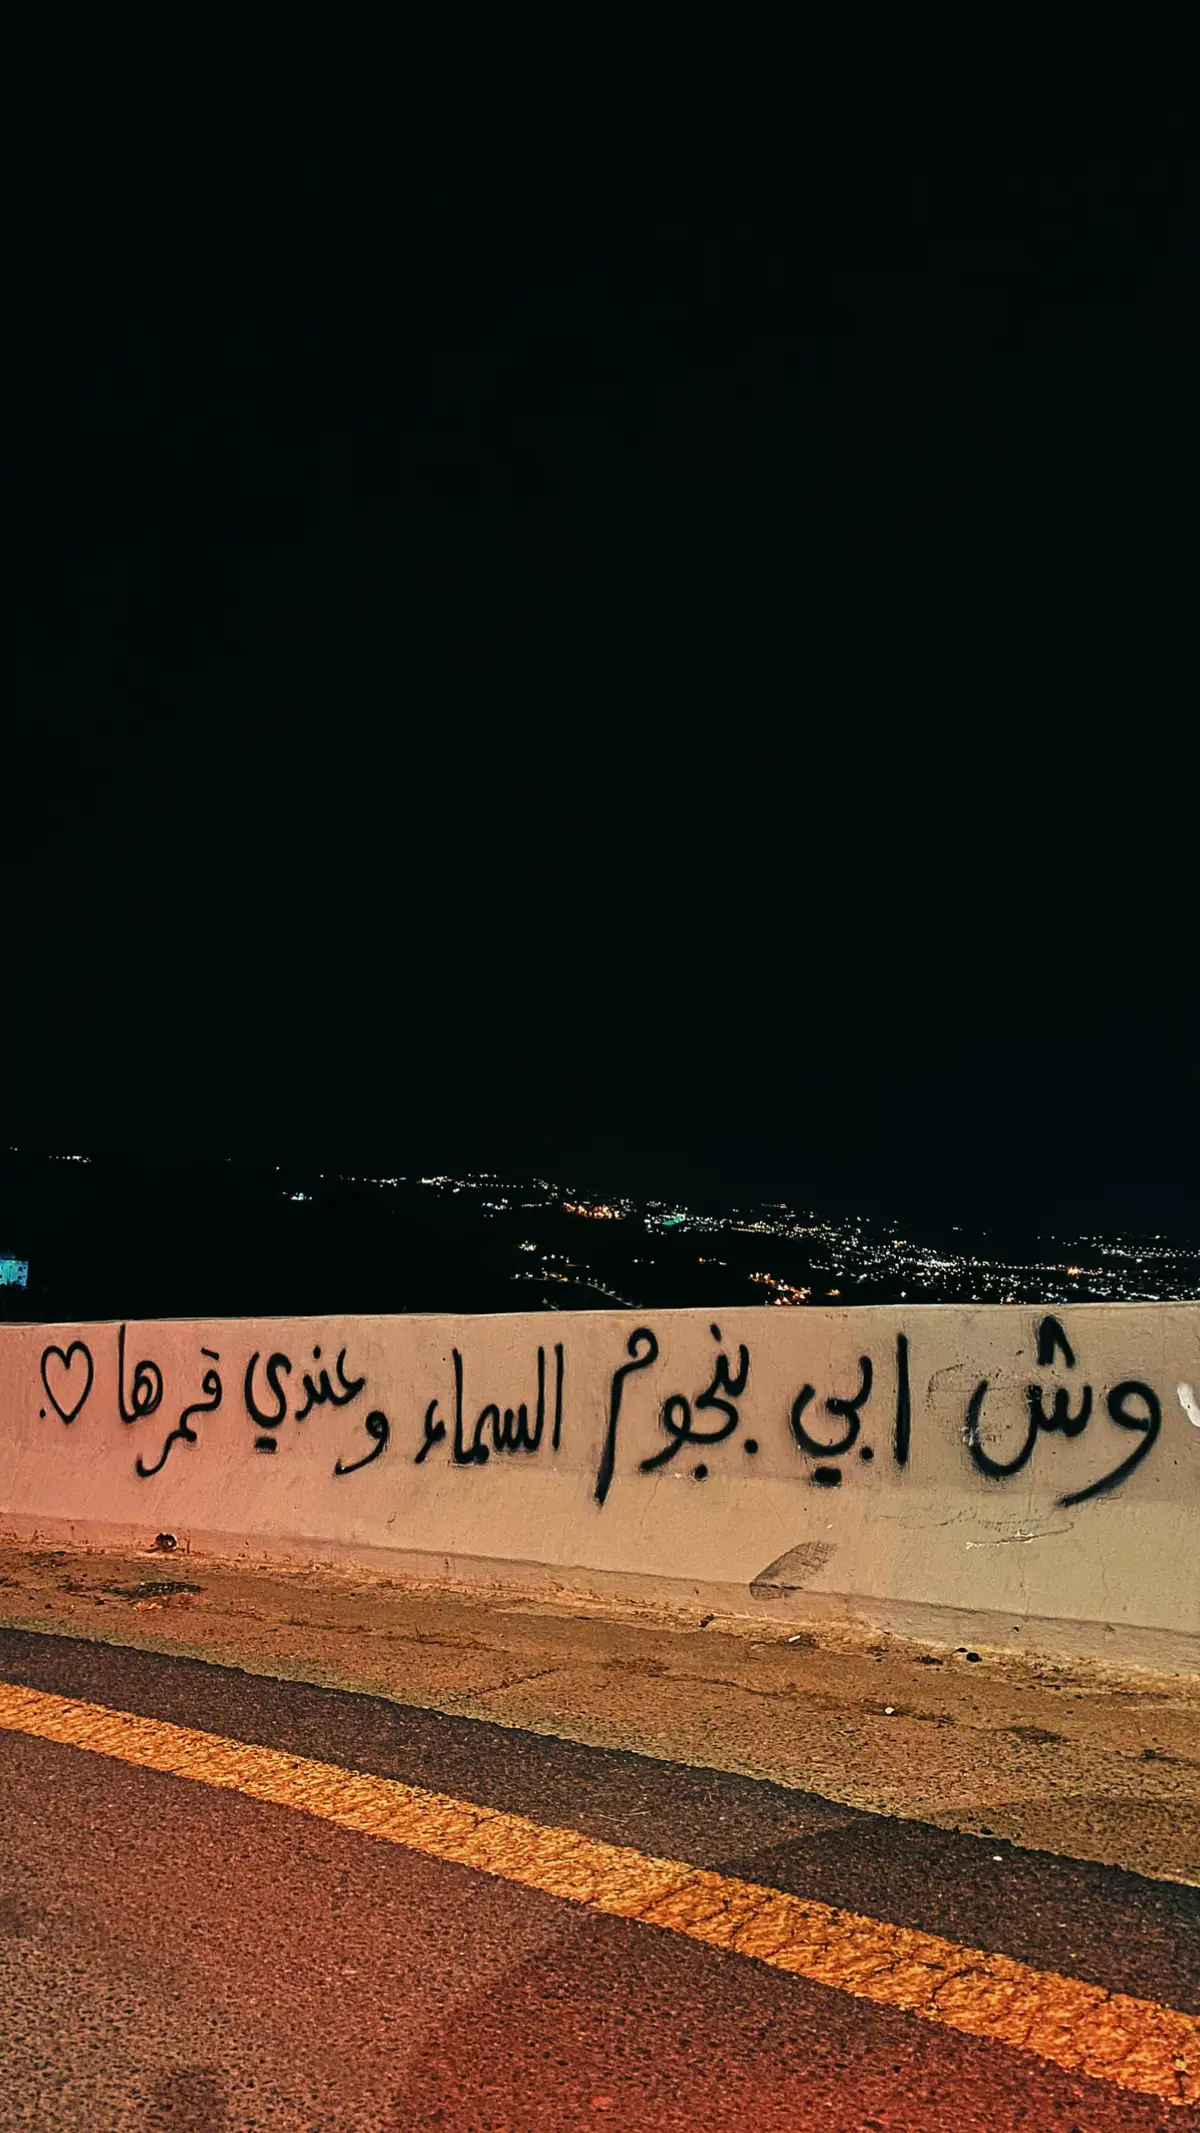 وش ابي بنجوم السماء و عندي قمرها ♡